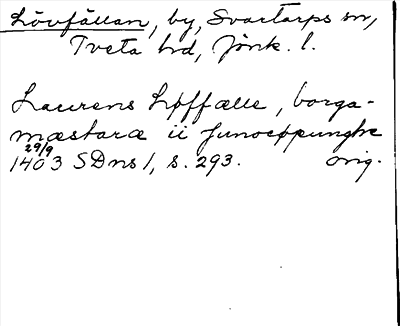 Lövfällan, by, Svartorps sn,
Tveta hd, Jönk. l.
Laurens Løffælle, borga-
mæstaræ ii Junocøpunghe
29/9
1403 SDns 1, s. 293. orig.